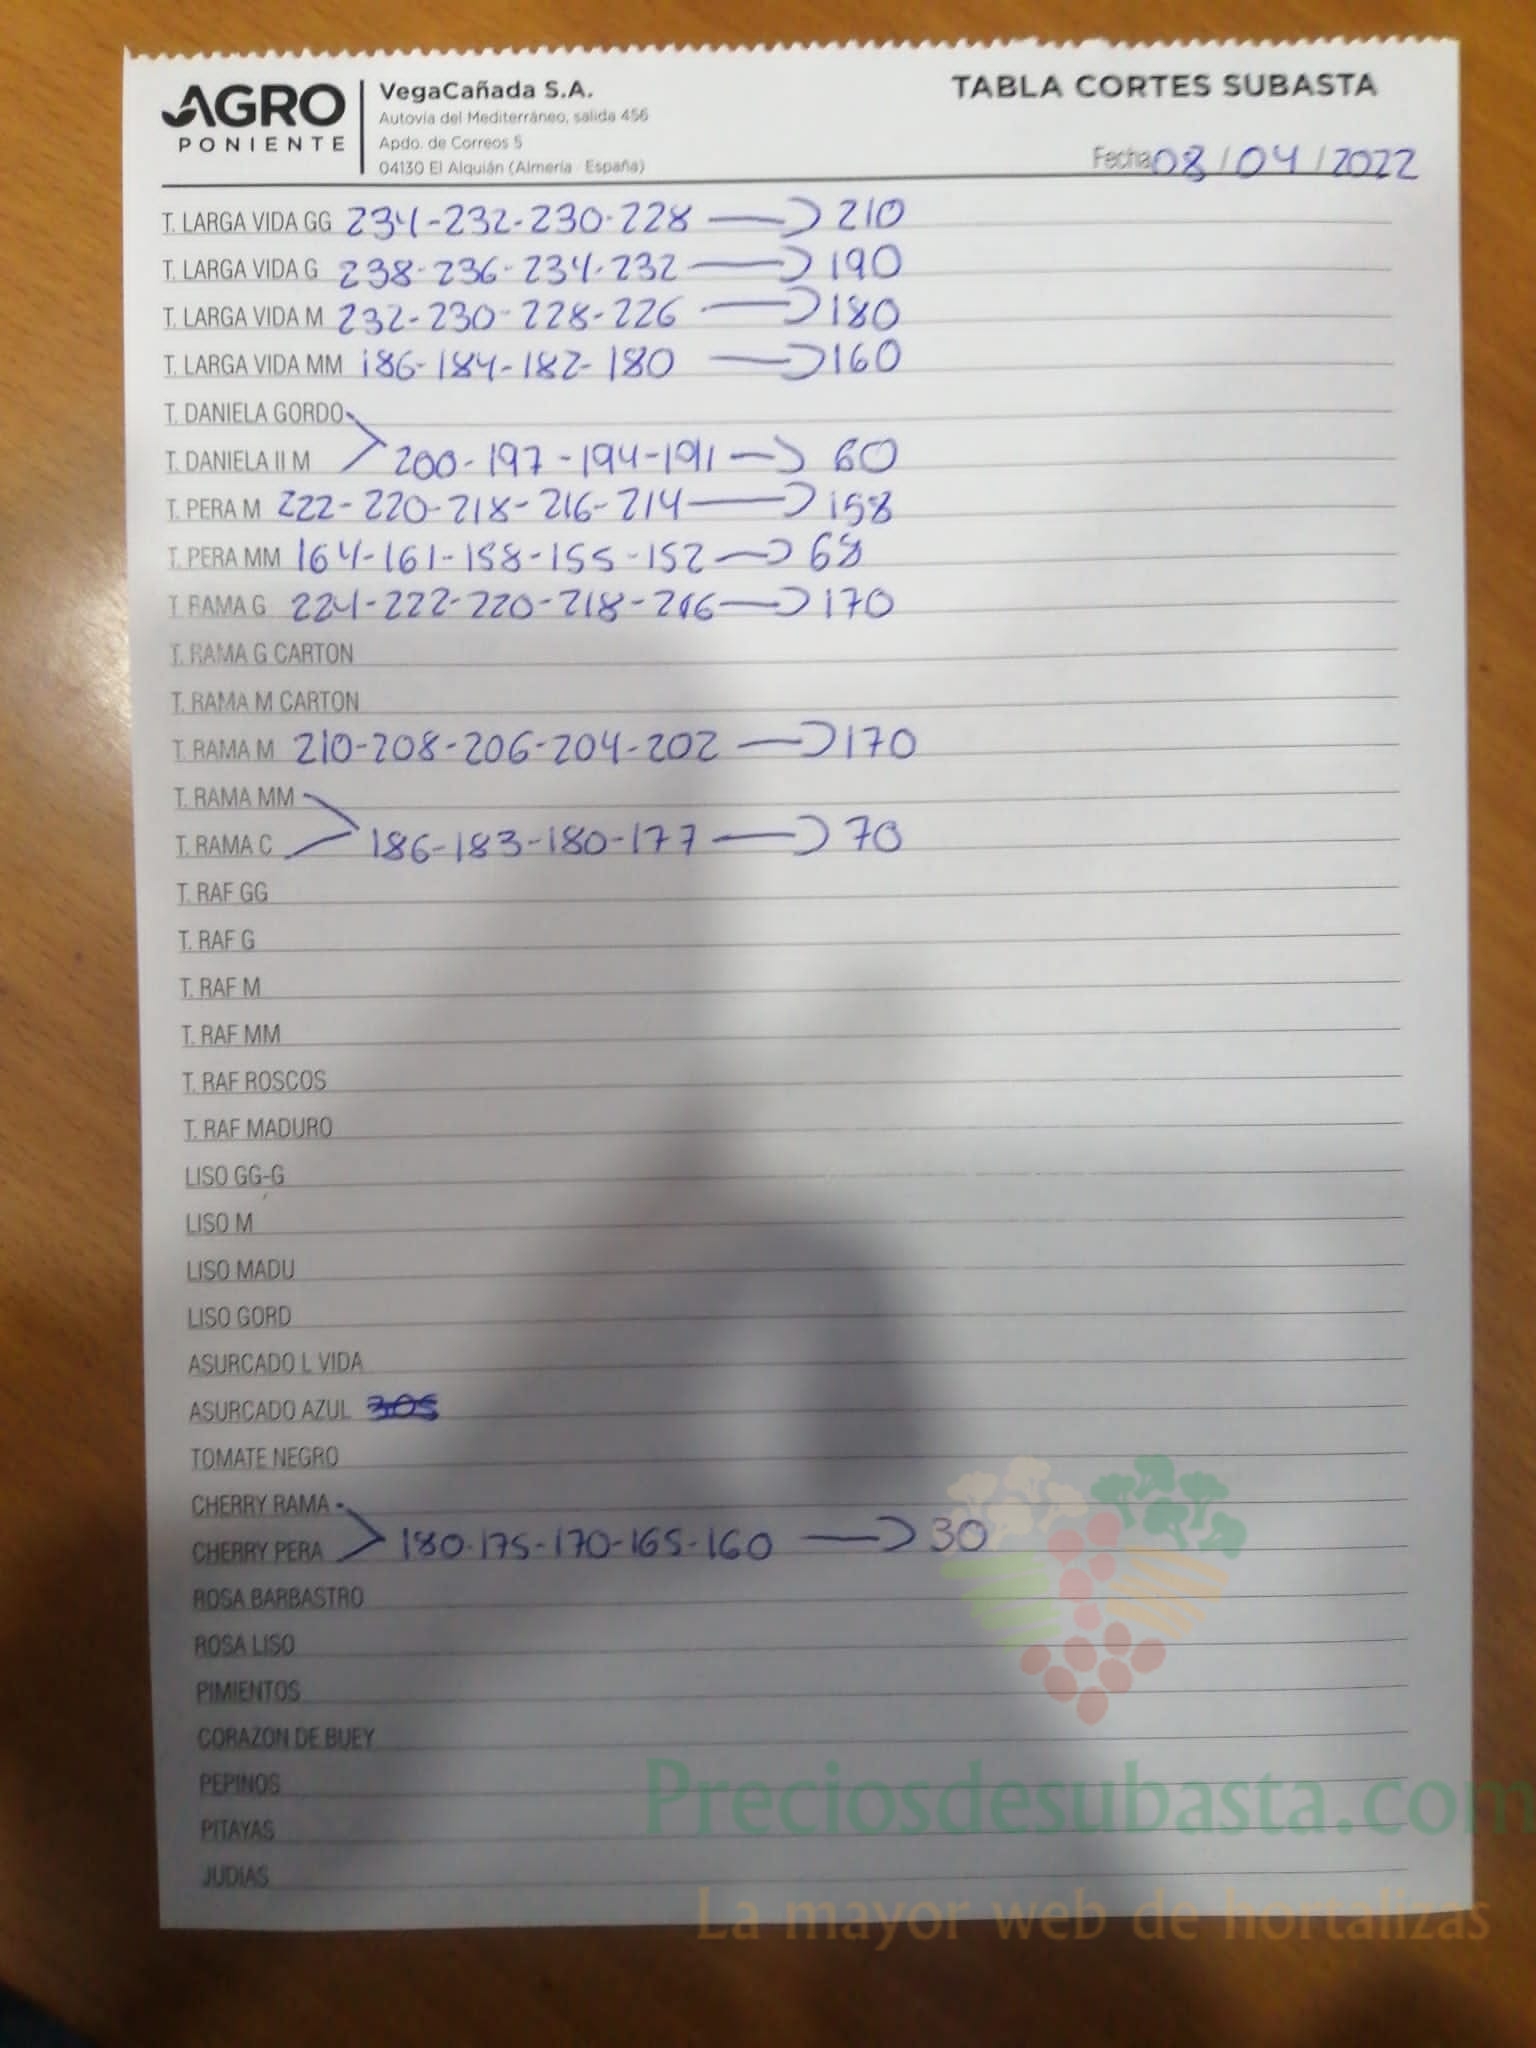 AGRO
PONIENTE
VegaCañada S.A.
Autovía del Mediterráneo, salida 456
Apdo. de Correos 5
04130 El Alquián (Almería - España)
TABLA CORTES SUBASTA
Fecha 08/04/2022
T. LARGA VIDA GG 234-232-230-228 → 210
T. LARGA VIDA G 238-236-234-232 → 190
T. LARGA VIDA M 232-230-228-226 → 180
T. LARGA VIDA MM 186-184-182-180 → 160
T. DANIELA GORDO
T. DANIELA II M 200-197-194-191 → 60
T. PERA M 222-220-218-216-214 → 158
T. PERA MM 164-161-158-155-152 → 68
T. RAMA G 224-222-220-218-216 → 170
T. RAMA G CARTON
T. RAMA M CARTON
T. RAMA M 210-208-206-204-202 → 170
T. RAMA MM
T. RAMA C 186-183-180-177 → 70
T. RAF GG
T. RAF G
T. RAF M
T. RAF MM
T. RAF ROSCOS
T. RAF MADURO
LISO GG-G
LISO M
LISO MADU
LISO GORD
ASURCADO L VIDA
ASURCADO AZUL 305
TOMATE NEGRO
CHERRY RAMA
CHERRY PERA 180-175-170-165-160 → 30
ROSA BARBASTRO
ROSA LISO
PIMIENTOS
CORAZON DE BUEY
PEPINOS
PITAYAS
JUDIAS
Preciosdesubasta.com
La mayor web de hortalizas